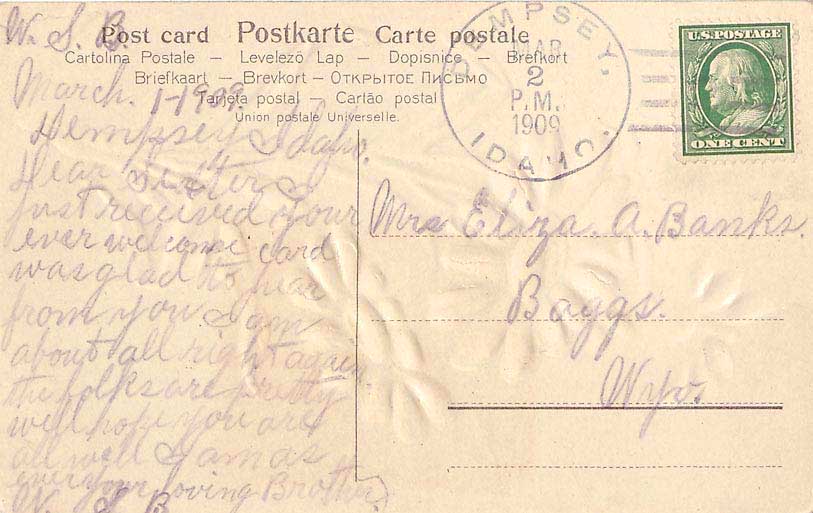 W. S. B.
Post card Postkarte Carte postale
Cartolina Postale — Levelező Lap — Dopisnice — Brefkort
Briefkaart — Brevkort — Открытое Письмо
Tarjeta postal — Cartão postal
Union postale Universelle.
DEMPSEY,
MAR
2
P.M.
1909
IDAHO.
U.S. POSTAGE
ONE CENT
March. 1-1909.
Dempsey Idaho.
Dear Sister I
just received your
ever welcome card
was glad to hear
from you I am
about all right again.
the folks are pretty
well hope you are
all well I am as
ever your loving Brother
W. S. B.
Mrs Eliza. A. Banks.
Baggs.
Wyo.